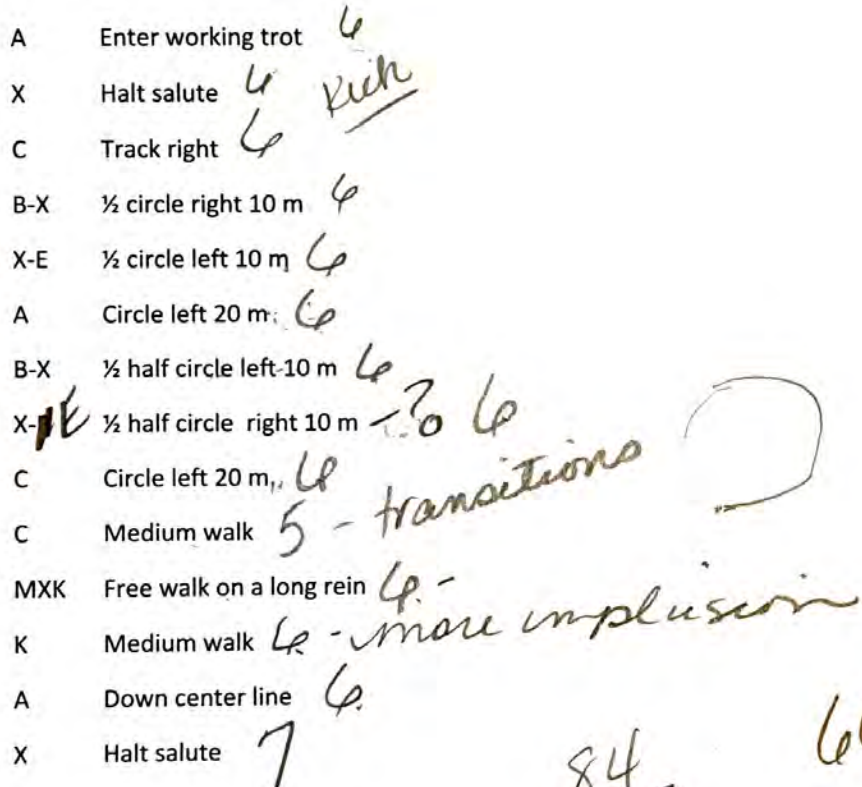 A Enter working trot 6
X Halt salute 6
C Track right 6
B-X ½ circle right 10 m 6
X-E ½ circle left 10 m 6
A Circle left 20 m. 6
B-X ½ half circle left 10 m 6
X-E ½ half circle right 10 m -? 6
C Circle left 20 m, 6
C Medium walk 5 - transitions
MXK Free walk on a long rein 6 -
K Medium walk 6 - more implusion
A Down center line 6
X Halt salute 7
84